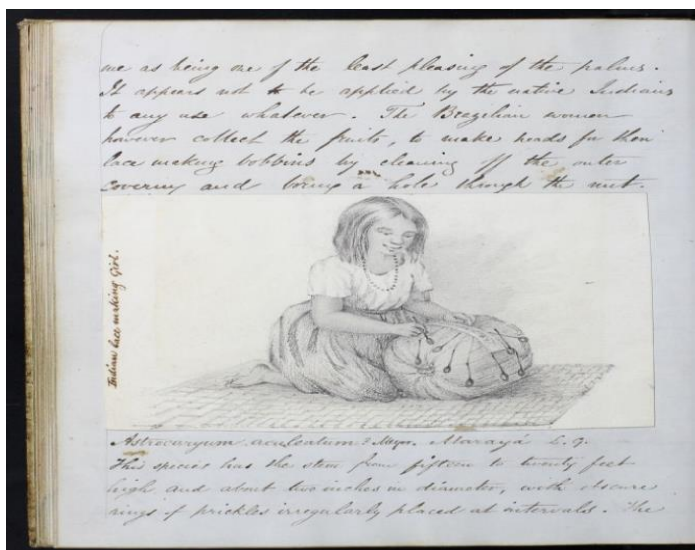 me as being one of the least pleasing of the palms.
It appears not to be applied by the native Indians
to any use whatever. The Brazilian women
however collect the fruits, to make heads for their
lace making bobbins by cleaning off the outer
covering and boring a hole through the nut.
Indian lace making Girl.
Astrocaryum aculeatum? Meyr. Marayá L. G.
This species has the stem from fifteen to twenty feet
high and about two inches in diameter, with obscure
rings of prickles irregularly placed at intervals. The